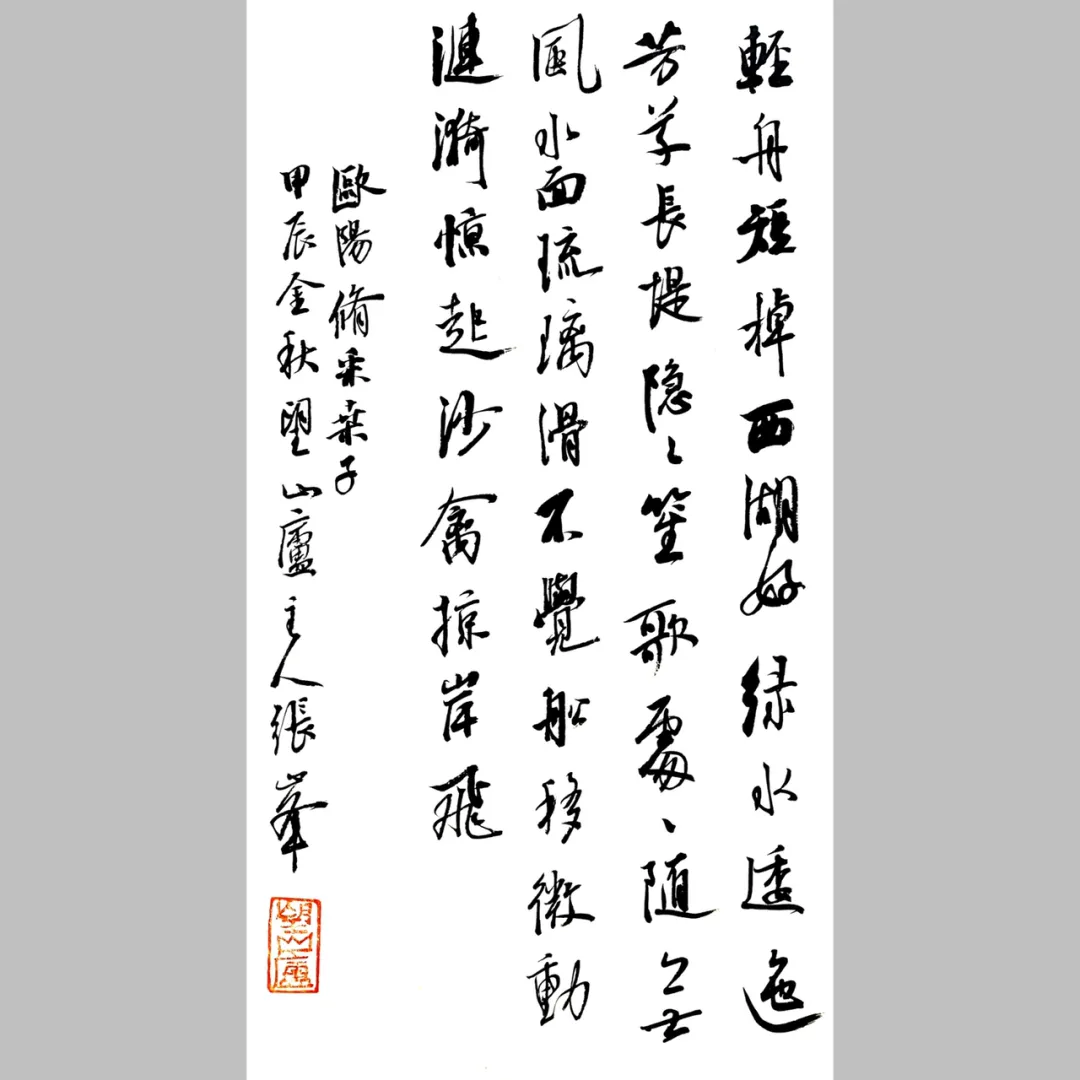 輕舟短棹西湖好绿水逶迤
芳草長堤隐〻笙歌處〻随無
風水面琉璃滑不覺船移微動
漣漪惊起沙禽掠岸飛
歐陽脩采桑子
甲辰金秋望山廬主人張峯
望山廬